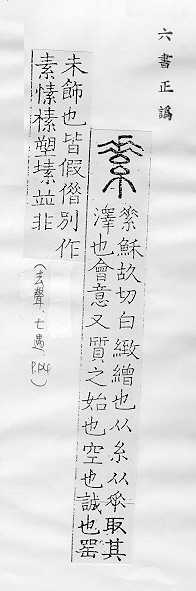 六書正譌
穌故切白緻繒也从糸从𠂹取其
澤也會意又質之始也空也誠也器
未飾也皆假借別作
素愫榡塑塐並非
(去聲、七遇、)